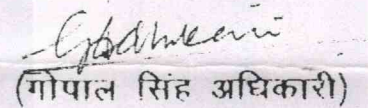 (गोपाल सिंह अधिकारी)